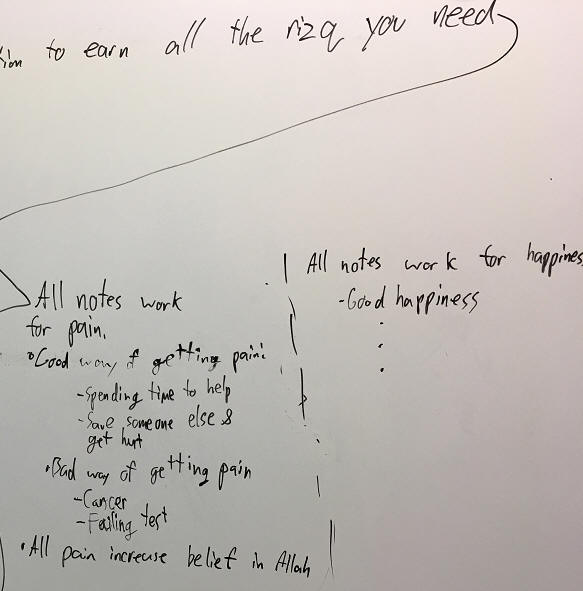 to earn all the rizq you need
All notes work
for pain.
• Good way of getting pain:
- Spending time to help
- Save someone else &
get hurt
• Bad way of getting pain
- Cancer
- Failing test
• All pain increase belief in Allah
All notes work for happines
- Good happiness